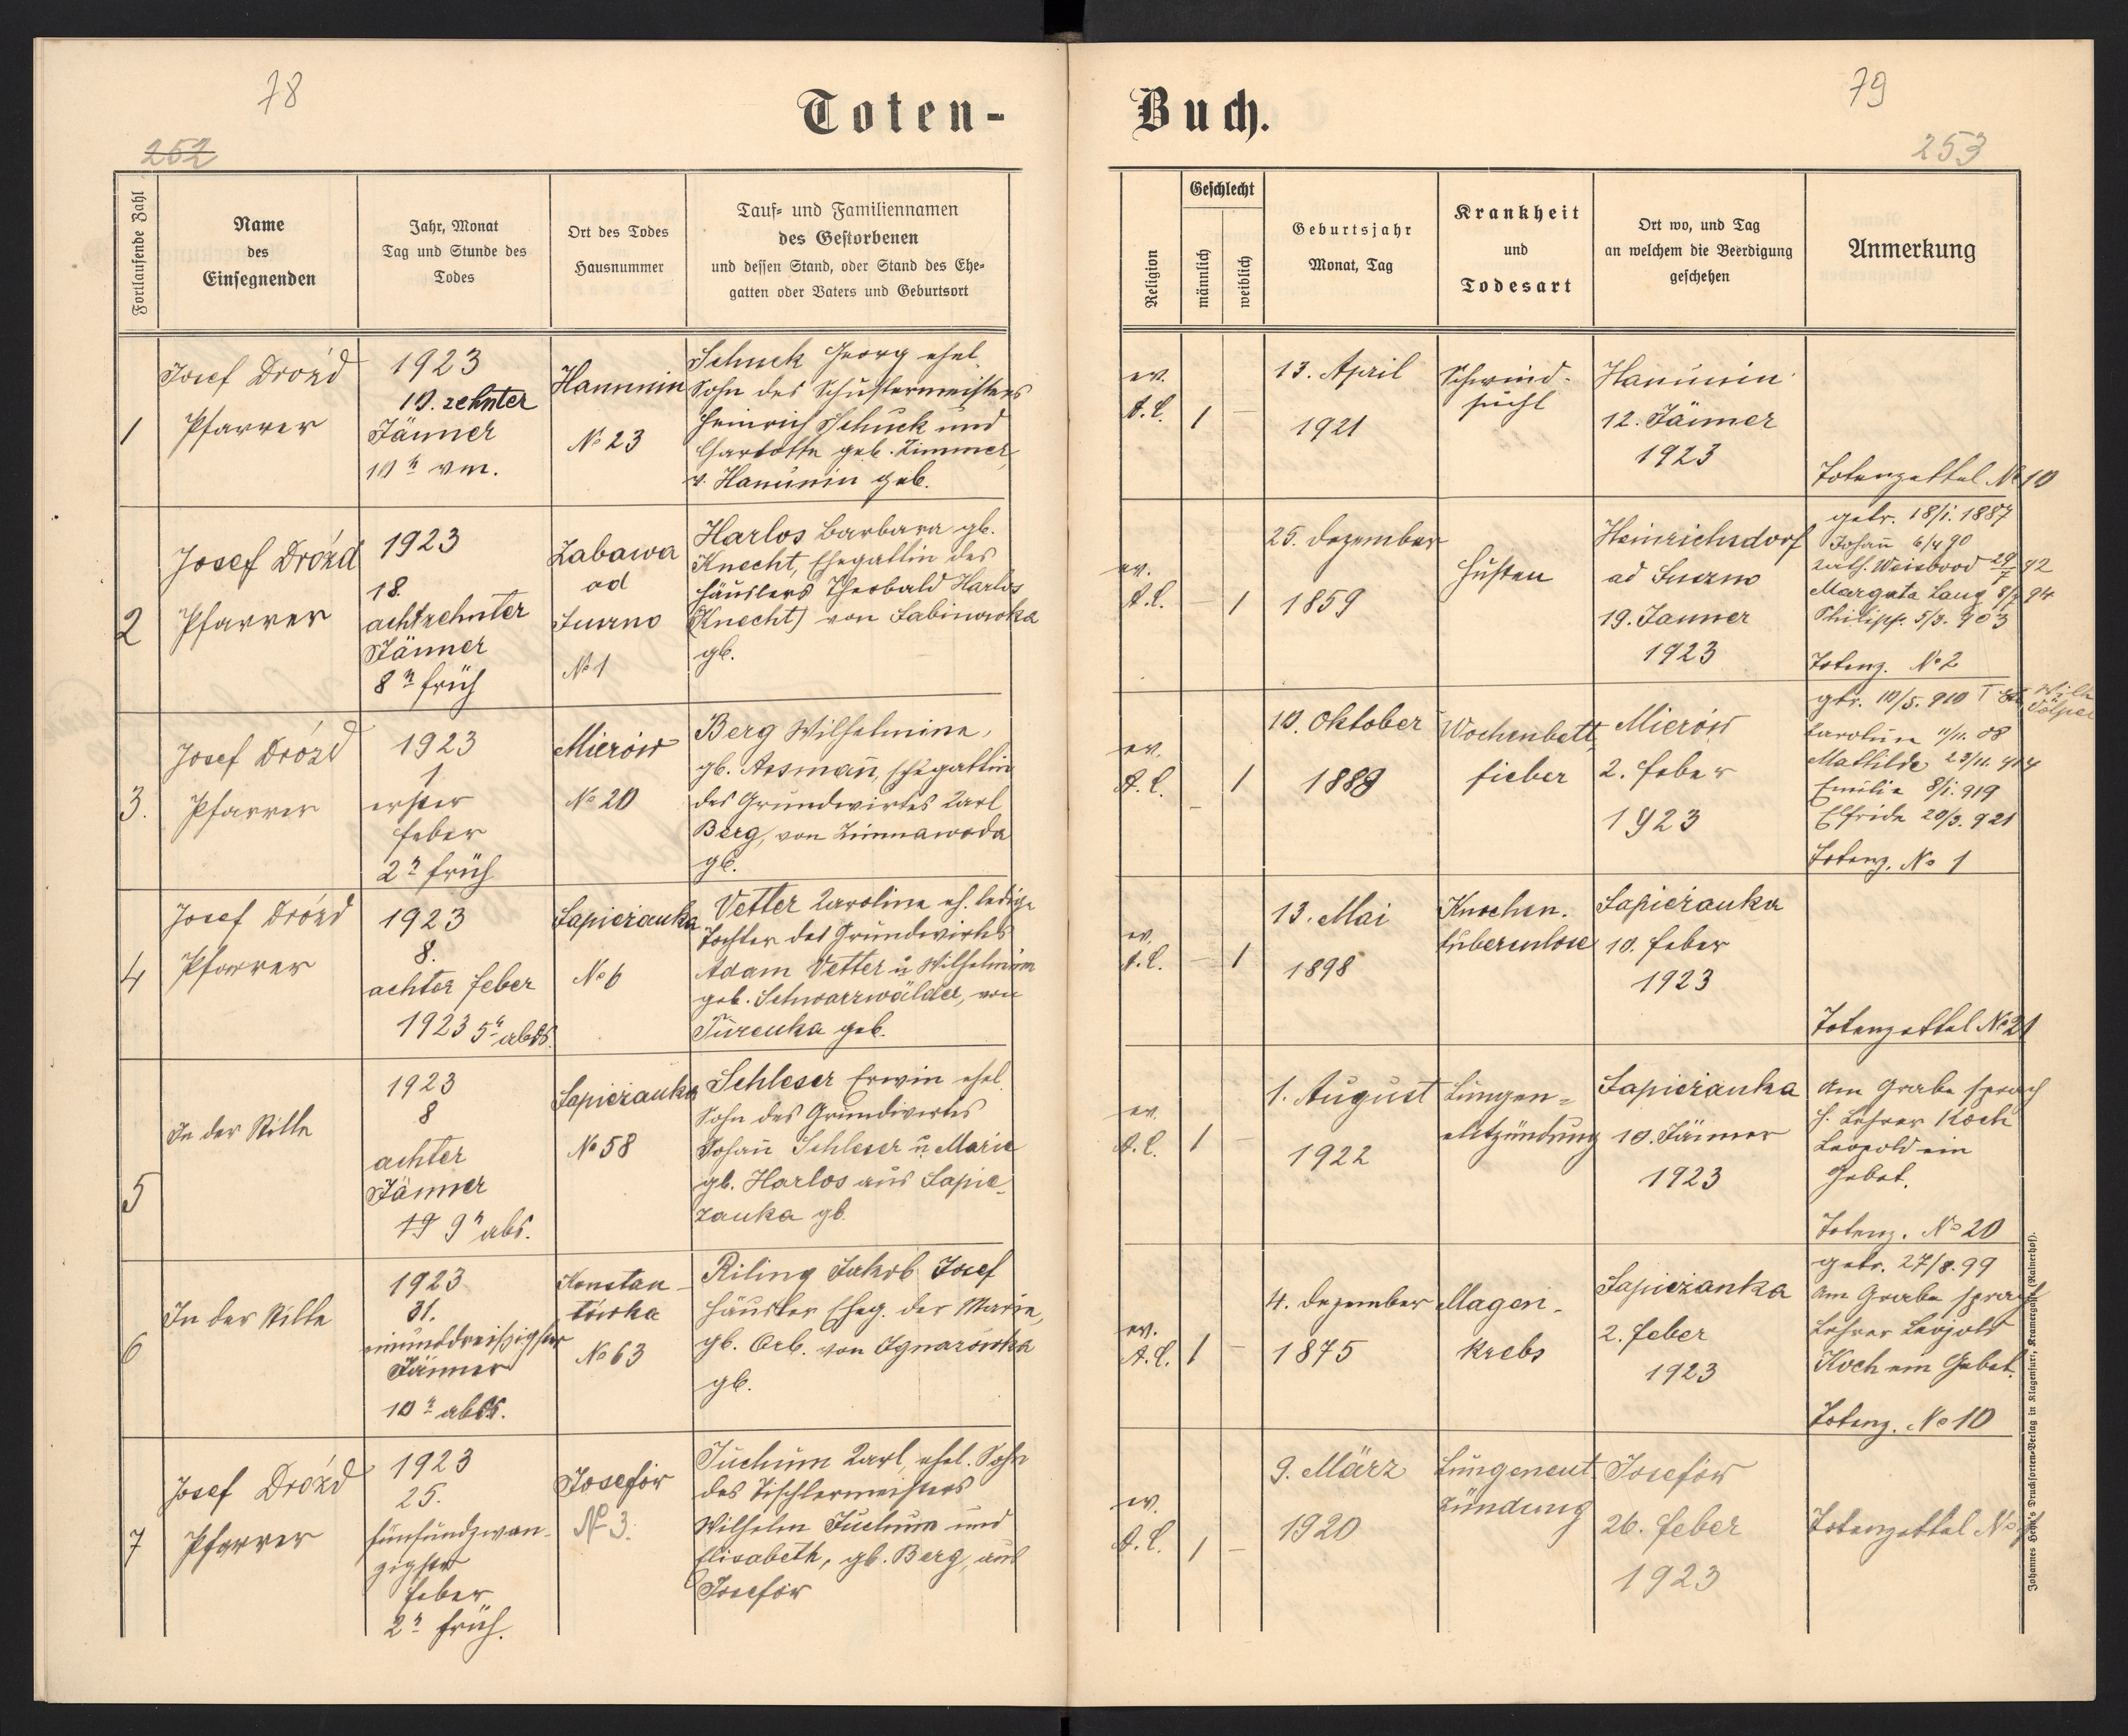 78
252
Toten-
Fortlaufende Zahl
Name
des
Einsegnenden
Jahr, Monat
Tag und Stunde des
Todes
Ort des Todes
Hausnummer
Tauf- und Familiennamen
des Gestorbenen
und dessen Stand, oder Stand des Ehe-
gatten oder Vaters und Geburtsort
1
Josef Drozd
Pfarrer
1923
10. zehnter
Jänner
10 h vm.
Hanunin
No 23
Schuck Georg ehel
Sohn des Schustermeisters
Heinrich Schuck und
Charlotte geb. Zimmer
v. Hanunin geb.
2
Josef Drozd
Pfarrer
1923
18.
achtzehnter
Jänner
8 h früh
Zabawa
ad
Suszno
No 1
Harlos Barbara gb.
Knecht, Ehegattin des
Häuslers Theobald Harlos
(Knecht) von Sabinowka
gb.
3.
Josef Drózd
Pfarrer
1923
1
erster
Feber
2 h früh
Mierów
No 20
Berg Wilhelmine,
gb. Assmann, Ehegattin
des Grundwirtes Karl
Berg, von Zimnawoda
gb.
4
Josef Drózd
Pfarrer
1923
8.
achter Feber
1923 5 h abds.
Sapieżanka
No 6
Vetter Karoline eh. ledige
Tochter des Grundwirtes
Adam Vetter u Wilhelmine
geb. Schwarzwälder, von
Turenka geb.
5
In der Stille
1923
8
achter
Jänner
19 9 h abs.
Sapieżanka
No 58
Schleser Erwin ehel.
Sohn des Grundwirtes
Johann Schleser u. Marie
gb. Harlos aus Sapie-
zanka gb.
6
In der Stille
1923
31.
einunddreißigster
Jänner
10 h abds.
Konstan-
tówka
No 63
Riling Jakob Josef
Häusler Eheg. der Marie,
gb. Orb. von Ignazówka
gb.
7
Josef Drozd
Pfarrer
1923
25.
fünfundzwan-
zigster
Feber
2 h früh.
Josefów
No 3.
Tuchum Karl, ehel. Sohn
des Tischlermeisters
Wilhelm Tuchum und
Elisabeth, gb. Berg, aus
Josefow
79
253
Buch.
Religion
Geschlecht
männlich
weiblich
Geburtsjahr
Monat, Tag
Krankheit
und
Todesart
Ort wo, und Tag
an welchem die Beerdigung
geschehen
Anmerkung
ev.
A.C.
1
-
13. April
1921
Schwind-
sucht
Hanunin
12. Jänner
1923
Totenzettel No 10
ev.
A.C.
-
1
25. Dezember
1859
Husten
Heinrichsdorf
ad Suszno
19. Janner
1923
getr. 18/1. 1887
Johann 6/4 90
Kath. Weisbrod 92
Margreta Lang 94
Philipp. 5/3. 903
Totenz. No 2
ev.
A.C.
-
1
10. Oktober
1889
Wochenbett
fieber
Mierów
2. Feber
1923
gtr. 10/5. 910
Karoline 11/11. 08
Mathilde
Emilie 8/1. 919
Elfride 20/3. 921
Totenz. No 1
ev.
A.C.
-
1
13. Mai
1898
Knochen.
tuberculose
Sapieżanka
10. Feber
1923
Totenzettel No 21
ev.
A.C.
1
-
1. August
1922
Lungen=
entzündung
Sapieżanka
10. Jänner
1923
Am Grabe sprach
H. Lehrer Koch
Leopold ein
Gebet.
Totenz. No 20
ev.
A.C.
1
-
4. Dezember
1875
Magen-
krebs
Sapieżanka
2. Feber
1923
getr. 27/8. 99
Am Grabe sprach
Lehrer Leopold
Koch ein Gebet.
Totenz. No 10
ev.
A.C.
1
-
9. März
1920
Lungenent
zündung
Josefów
26. Feber
1923
Totenzettel No
Johannes Heyn's Drucksorten-Verlag in Klagenfurt, Kramergasse (Rainerhof).